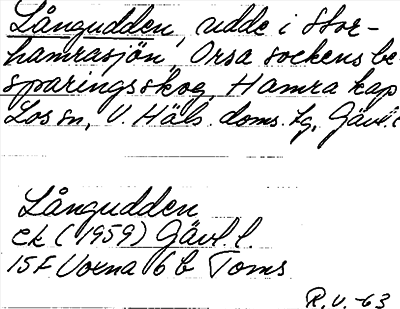 Långudden, udde i Stor-
hamrasjön, Orsa sockens be-
sparingsskog, Hamra kap
Los sn, V. Häls. doms. tg, Gävl. l
Långudden
ek (1959) Gävl. l.
15F Voxna 6 b Toms
R.V. -63